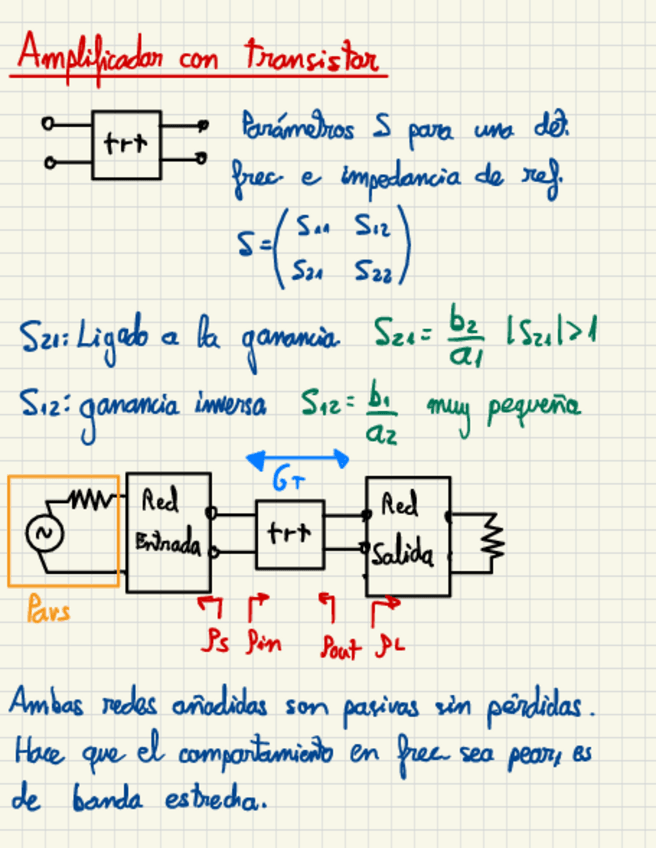 Amplificador con transistor
trt
Parámetros S para una det.
frec e impedancia de ref.
S = ( S11 S12
S21 S22 )
S21: Ligado a la ganancia S21 = b2/a1 |S21|>1
S12: ganancia inversa S12 = b1/a2 muy pequeña
GT
Red
Entrada
trt
Red
Salida
~
Pavs
ρs ρin ρout ρL
Ambas redes añadidas son pasivas sin pérdidas.
Hace que el comportamiento en frec sea peor, es
de banda estrecha.